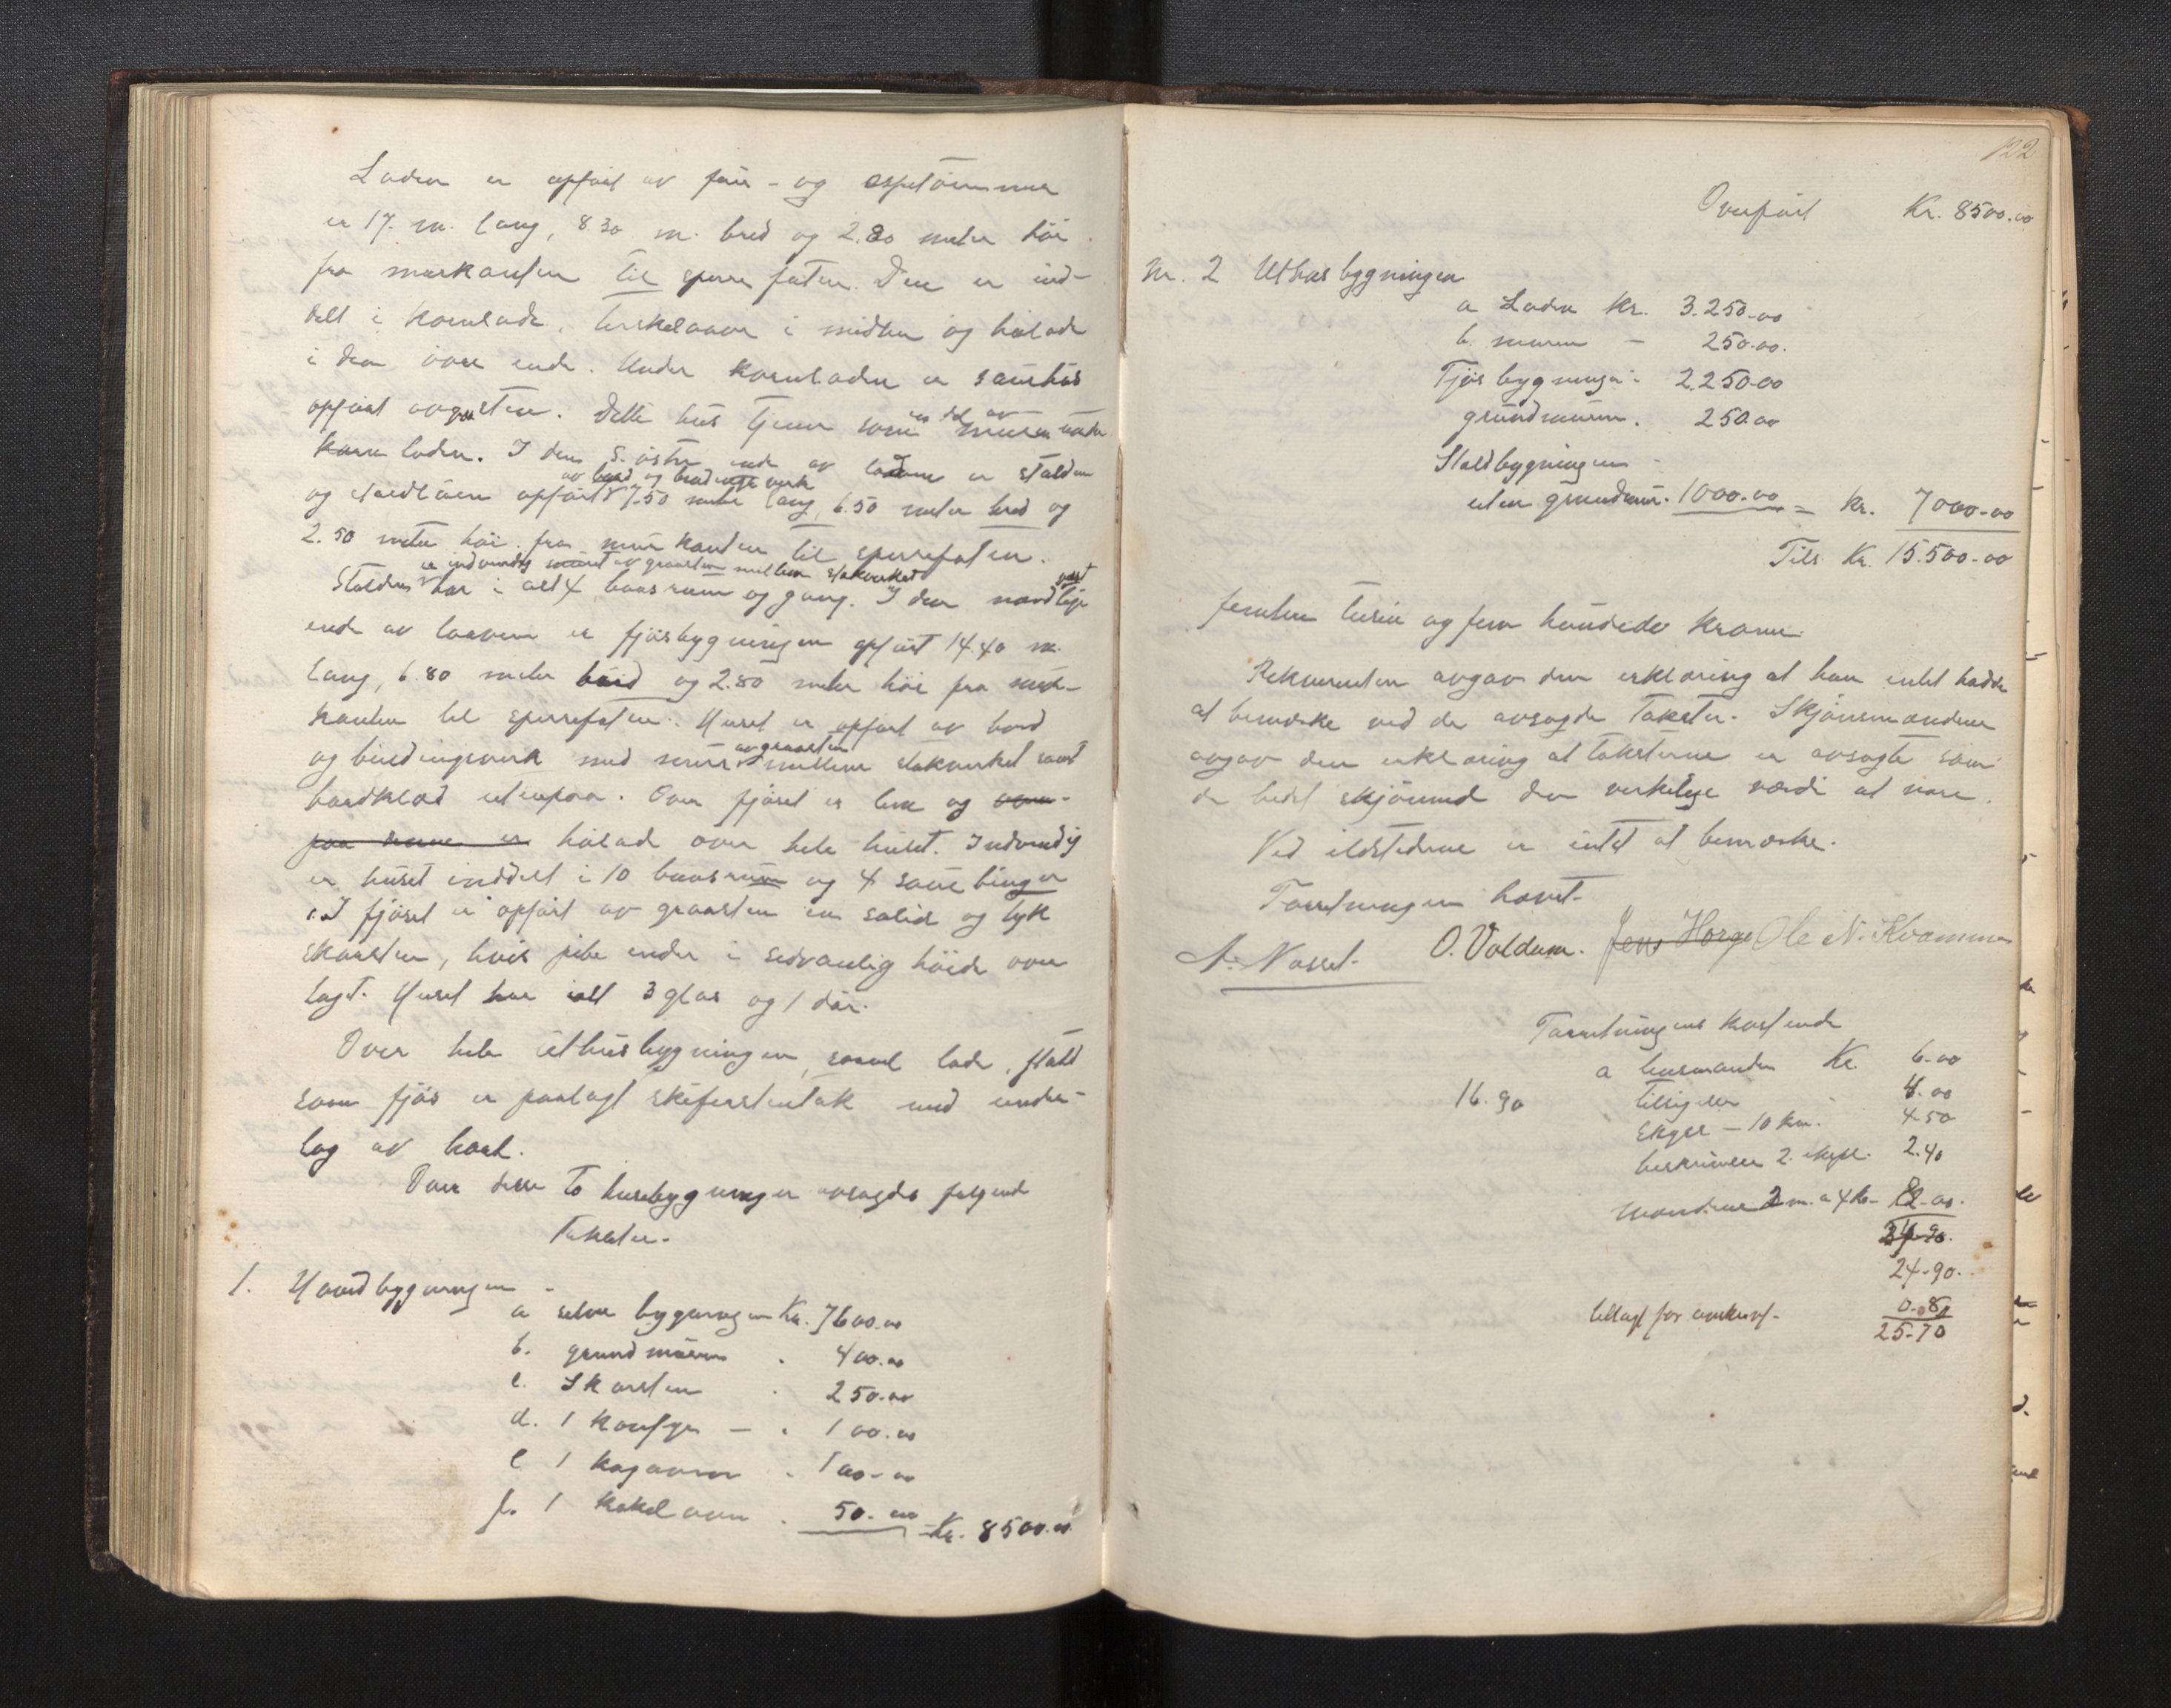 Laden er opført av furu- og ospetømmer
er 17. m. lang, 8.30 m. bred og 2.80 meter høi
fra murkanten til sperrefoten. Den er ind-
delt i kornlade, treskelaave i midten og hølade
i den øvre ende. Under kornladen er sauehus
opført av graasten. Dette hus tjener som en del av muren under
korn laden. I den S. østre ende av ladene er stalden
og staldlåven opført av bord og bindingsverk 7.50 meter lang, 6.50 meter bred og
2.50 meter høi fra murkanten til sperrefoten.
Stalden er indvendig muret av graasten mellem stakverket har i alt 4 baasrum og gang. I den nordvestlige
ende av laaven er fjøsbygningen opført 14.40 m.
lang, 6.80 meter bred og 2.80 meter høi fra mur-
kanten til sperrefoten. Huset er opført av bord
og bindingsverk med mur av graasten mellem stakverket samt
bordklæd utenpaa. Over fjøset er lem og
hølade over hele huset. Indvendig
er huset inddelt i 10 baasrum og 4 sauebinger
I fjøset er opført av graasten en solid og tyk
skorsten, hvis pibe ender i sedvanlig høide over
taget. Huset har ialt 3 glas og 1 dør.
Over hele uthusbygningen, saavel lade, stald
som fjøs er paalagt skiferstentak med under-
lag av bord.
Over disse to husebygninger avsagdes følgende
Takster.
1. Hovedbygningen -
a selve bygningen Kr. 7600.00
b. grundmuren . 400.00
c. Skorsten . 250.00
d. 1 komfyr - . 100.00
e 1 kogeovn . 100-00
f. 1 kakelovn . 50.00 = Kr. 8500.00
122
Overført Kr. 8500.00
Nr. 2 Uthusbygningen
a Laden Kr. 3.250-00
b. muren - 250-00.
Fjøsbygningen - 2.250-00
grundmuren. 250.00
Staldbygningen -
uten grundmur. 1000.00 = Kr. 7000-00
Tils Kr. 15.500-00
femten tusen og fem hundrede kroner.
Rekvirenten avgav den erklæring at han intet hadde
at bemerke ved de avsagde takster. Skjønsmændene
avgav den erklæring at taksterne er avsagte som
de bedst skjønned den verkelige værdi at være.
Ved ildstederne er intet at bemærke.
Forretningen hævet.
A. Næsset. O. Voldum. Jens Horge Ole N. Kvammen
Forretningens kostende
a lensmanden Kr. 6-00
16.90 tilligelse 4.00
skyss - 10 km. 4-50
beskrivelse 2. expl. 2.40
Mændene 2 m. a 4 kr - 8-00.
24-90.
tillagt for avskrift- 0.80
25-70